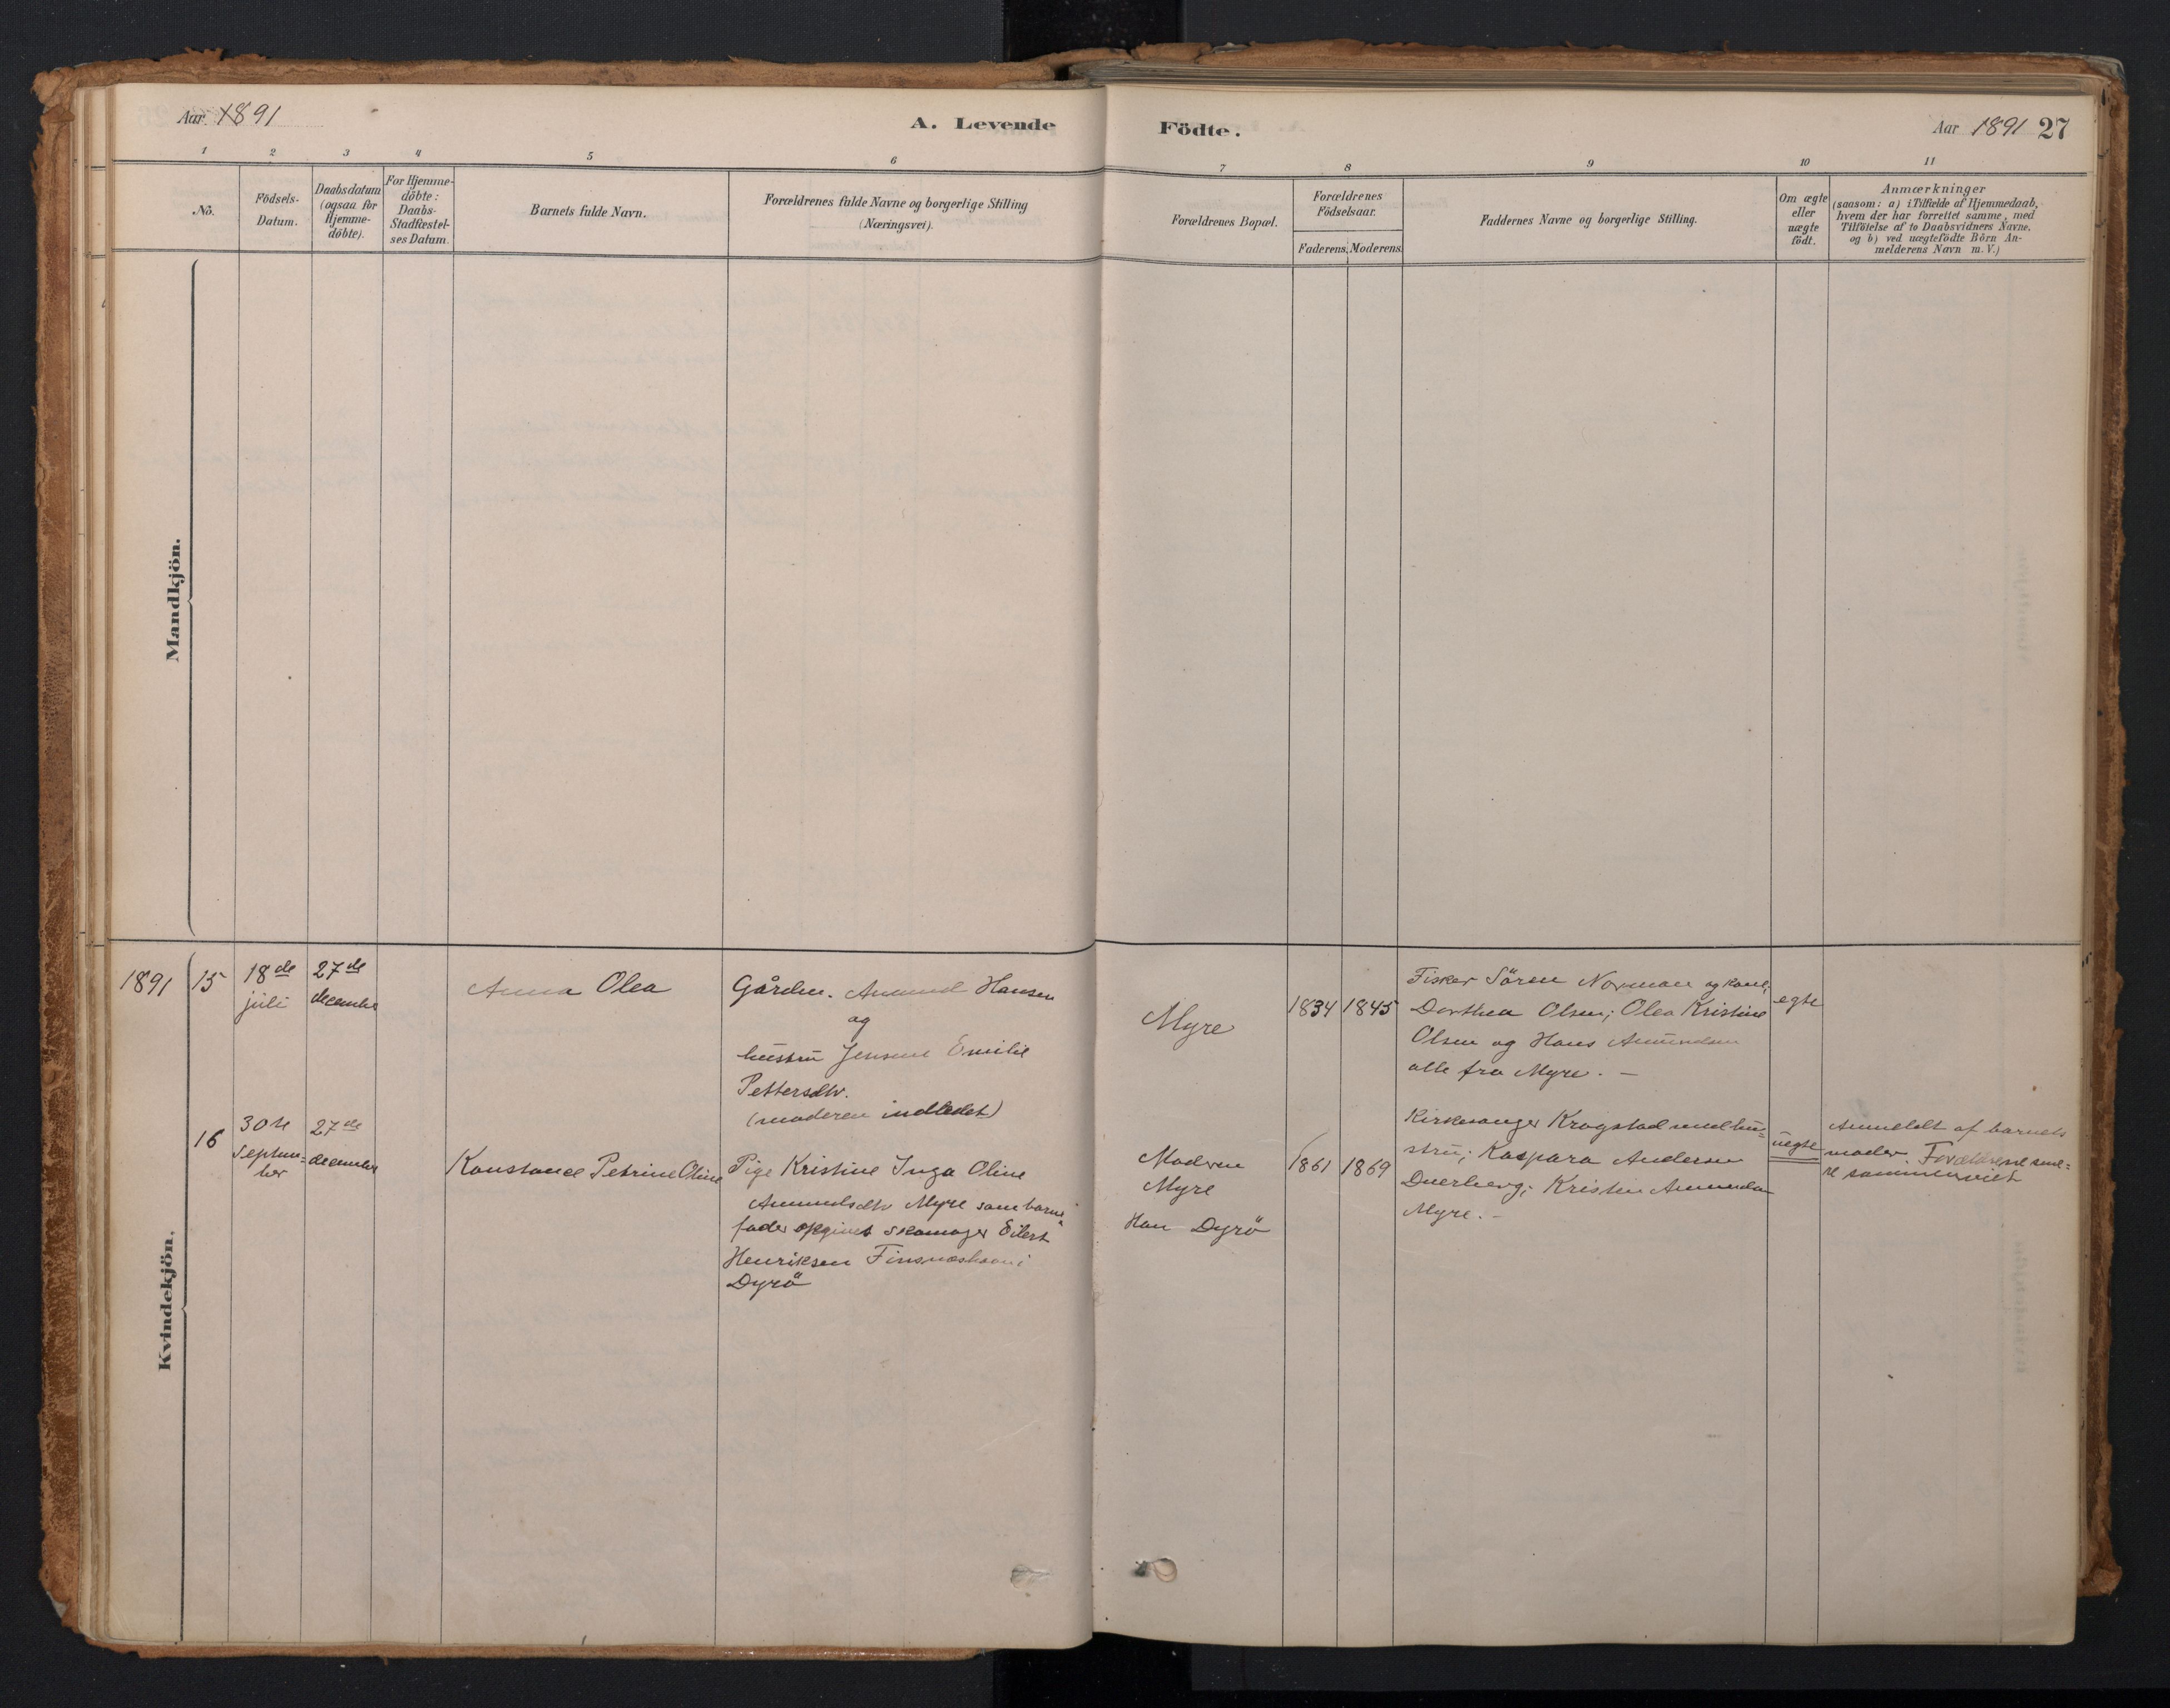 Aar 1891
A. Levende
Födte.
Aar 1891 27
1 2 3 4 5 6 7 8 9 10 11
No.
Födsels-
Datum.
Daabsdatum
(ogsaa for
Hjemme-
döbte).
For Hjemme-
döbte:
Daabs-
Stadfæstel-
ses Datum.
Barnets fulde Navn.
Forældrenes fulde Navne og borgerlige Stilling
(Næringsvei).
Forældrenes Bopæl.
Forældrenes
Födselsaar.
Faderens. Moderens.
Faddernes Navne og borgerlige Stilling.
Om ægte
eller
uægte
födt.
Anmærkninger
(saasom: a) i Tilfælde af Hjemmedaab,
hvem der har forrettet samme, med
Tilföielse af to Daabsvidners Navne,
og b) ved uægtefödte Börn An-
melderens Navn m. V.)
Mandkjön.
Kvindekjön.
1891
15
18de
juli
27de
december
Anna Olea
Gårdm. Amund Hansen
og
hustru Jensine Emilie
Pettersdtr.
(moderen indledet)
Myre
1834
1845
Fisker Sören Norman og kone;
Dorthea Olsen; Olea Kristine
Olsen og Hans Amundsen
alle fra Myre. –
egte
16
30te
Septem=
ber
27de
december
Konstance Petrine Oline
Pige Kristine Inga Oline
Amundsdtr Myre som barne
fader opgives skomager Eilert
Henriksen Finsnæshavn i
Dyrö
Modren
Myre
Han Dyrö
1861
1869
Kirkesanger Krogstad med hu=
stru; Kaspara Andersen
Dverberg; Kristen Amundsen
Myre. –
uegte
Anmeldt af barnets
moder. Forældrene sene=
re sammenviet